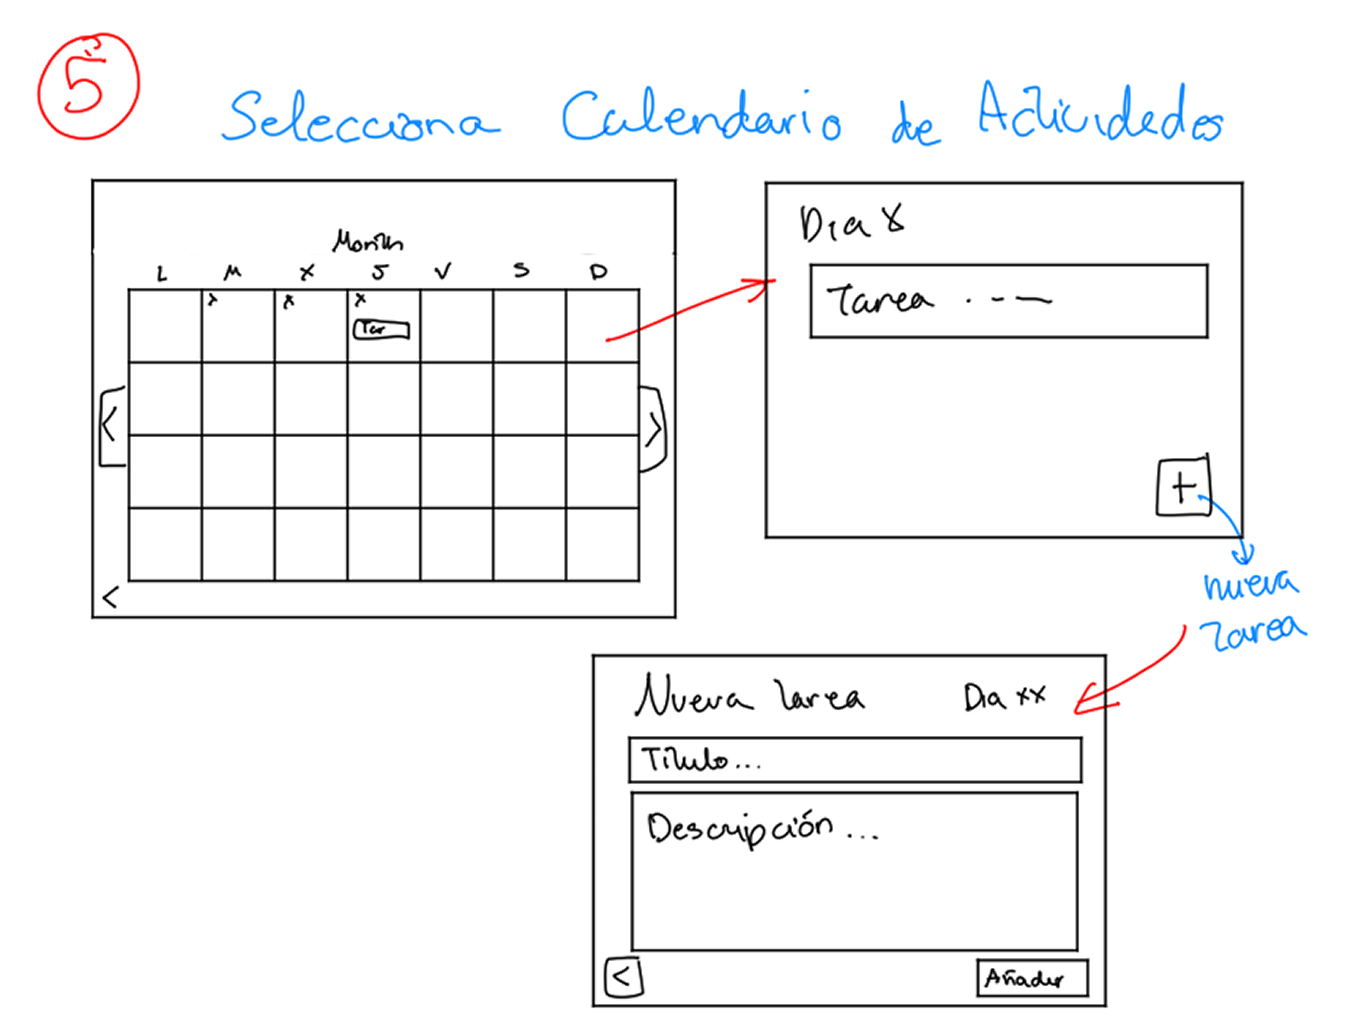 5
Selecciona Calendario de Actividades
Month
L M X J V S D
x x x
Tar
<
>
<
Dia X
Tarea . - - —
+
nueva
Tarea
Nueva Tarea Dia xx
Título...
Descripción...
<
Añadir